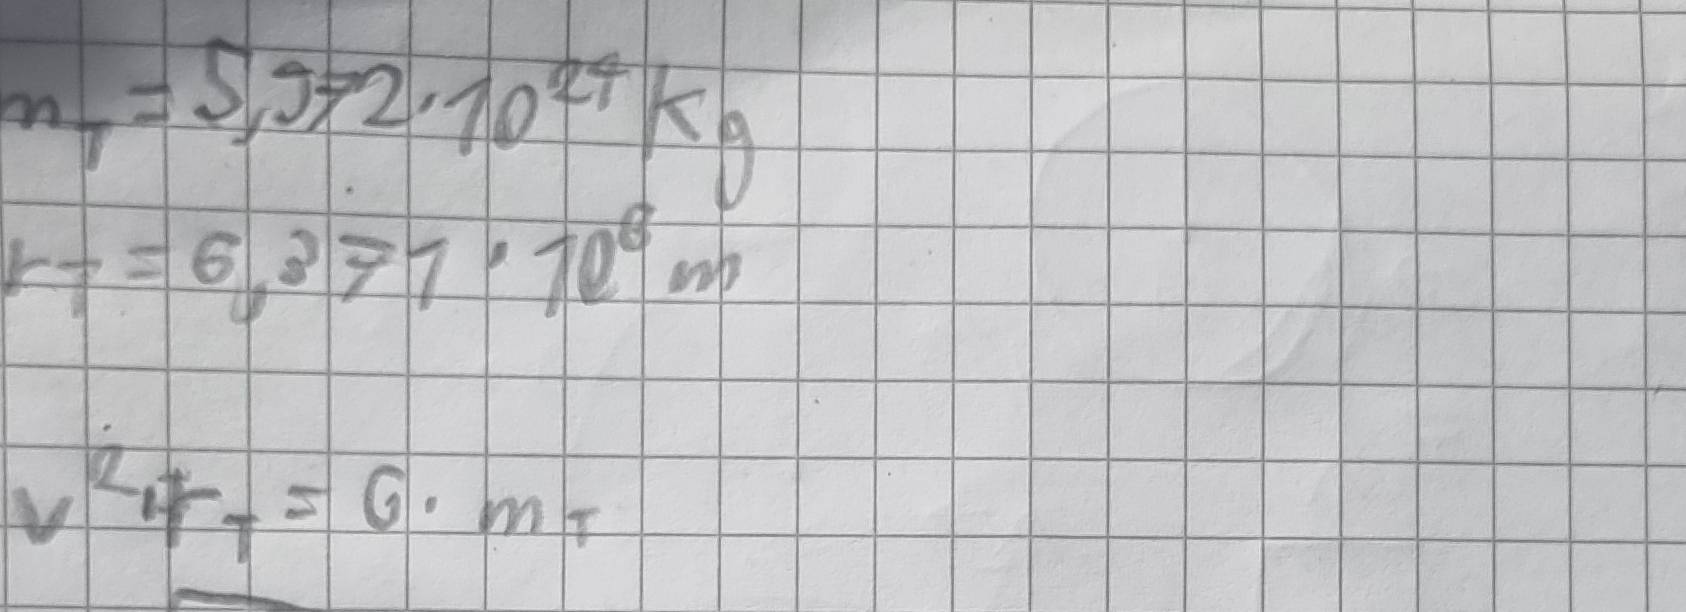 m_T = 5,972·10²⁴ kg
r_T = 6,371·10⁶ m
v²·r_T = G·m_T